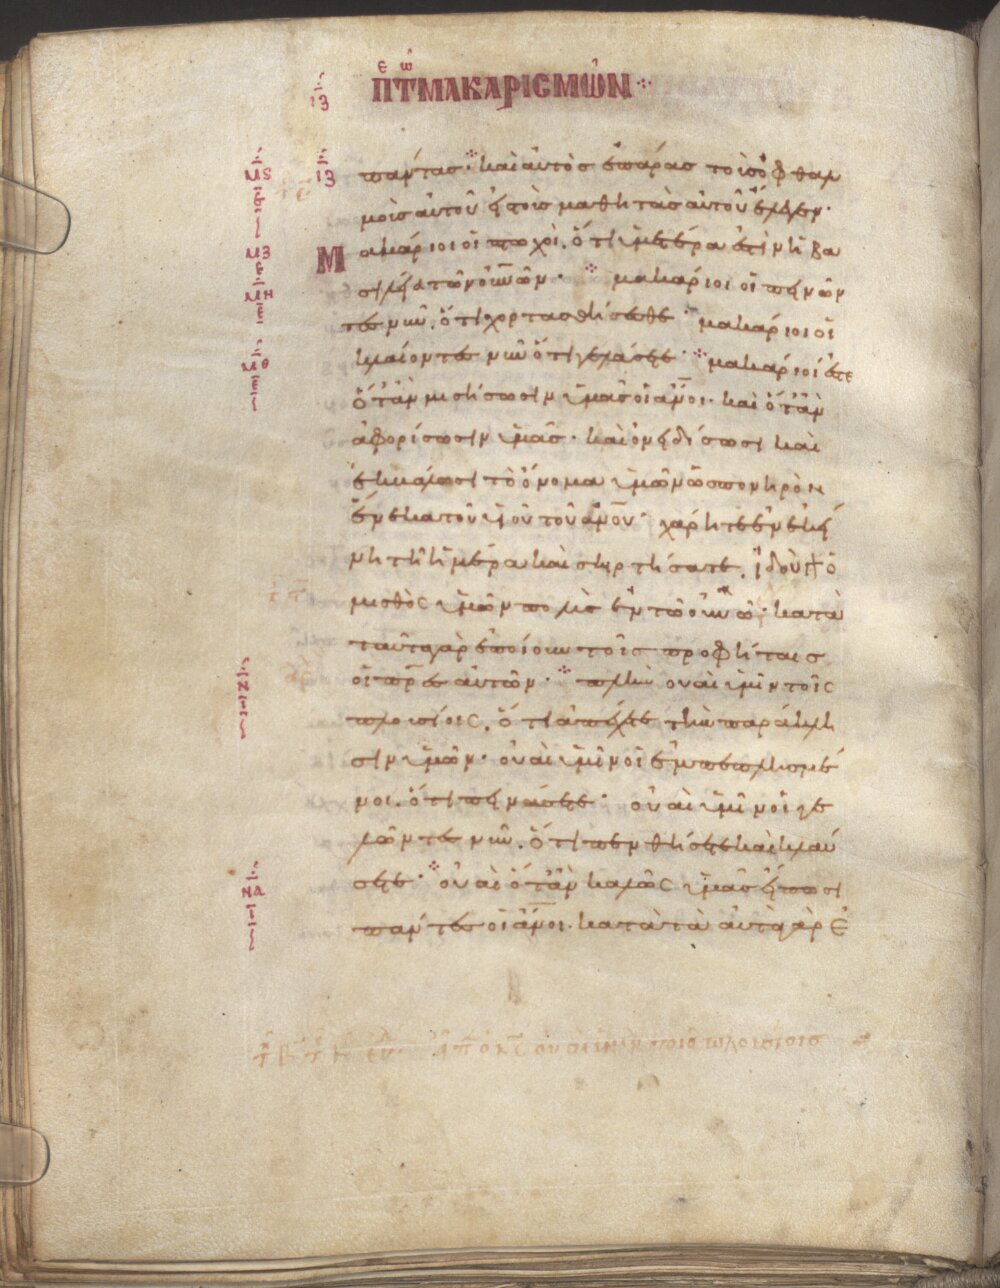 ΠΕ ΤΩ ΜΑΚΑΡΙΣΜΩΝ
ιζ
μς ιζ πάντας· καὶ αὐτὸς ἐπάρας τοὺς ὀφθαλ
μοὺς αὐτοῦ εἰς τοὺς μαθητὰς αὐτοῦ ἔλεγεν·
μζ Μακάριοι οἱ πτωχοὶ, ὅτι ὑμετέρα ἐστὶν ἡ βα
μη σιλεία τῶν οὐνῶν· μακάριοι οἱ πεινῶν
τες νῦν, ὅτι χορτασθήσεσθε· μακάριοι οἱ
μθ κλαίοντες νῦν ὅτι γελάσετε· μακάριοί ἐστε
ὅταν μισήσωσιν ὑμᾶς οἱ ἄνοι· καὶ ὅταν
ἀφορίσωσιν ὑμᾶς· καὶ ὀνειδίσωσι καὶ
ἐκβάλωσι τὸ ὄνομα ὑμῶν ὡς πονηρὸν
ἕνεκα τοῦ υἱοῦ τοῦ ἀνου· χάρητε ἐν ἐκεί
νῃ τῇ ἡμέρα καὶ σκιρτήσατε, ἰδοὺ γὰρ ὁ
μισθὸς ὑμῶν πολὺς ἐν τῶ οὐνῶ· κατὰ
ταῦτα γὰρ ἐποίουν τοῖς προφήταις
ν οἱ πρες αὐτῶν· πλὴν οὐαὶ ὑμῖν τοῖς
πλουσίοις, ὅτι ἀπέχετε τὴν παράκλη
σιν ὑμῶν· οὐαὶ ὑμῖν οἱ ἐμπεπλησμέ
νοι, ὅτι πεινάσετε· οὐαὶ ὑμῖν οἱ γε
λῶντες νῦν, ὅτι πενθήσετε καὶ κλαύ
να σετε· οὐαὶ ὅταν καλῶς ὑμᾶς εἴπωσι
πάντες οἱ ἄνοι· κατὰ τὰ αὐτὰ γὰρ ἐ
οὐαὶ ὑμῖν τοῖς πλουσίοις